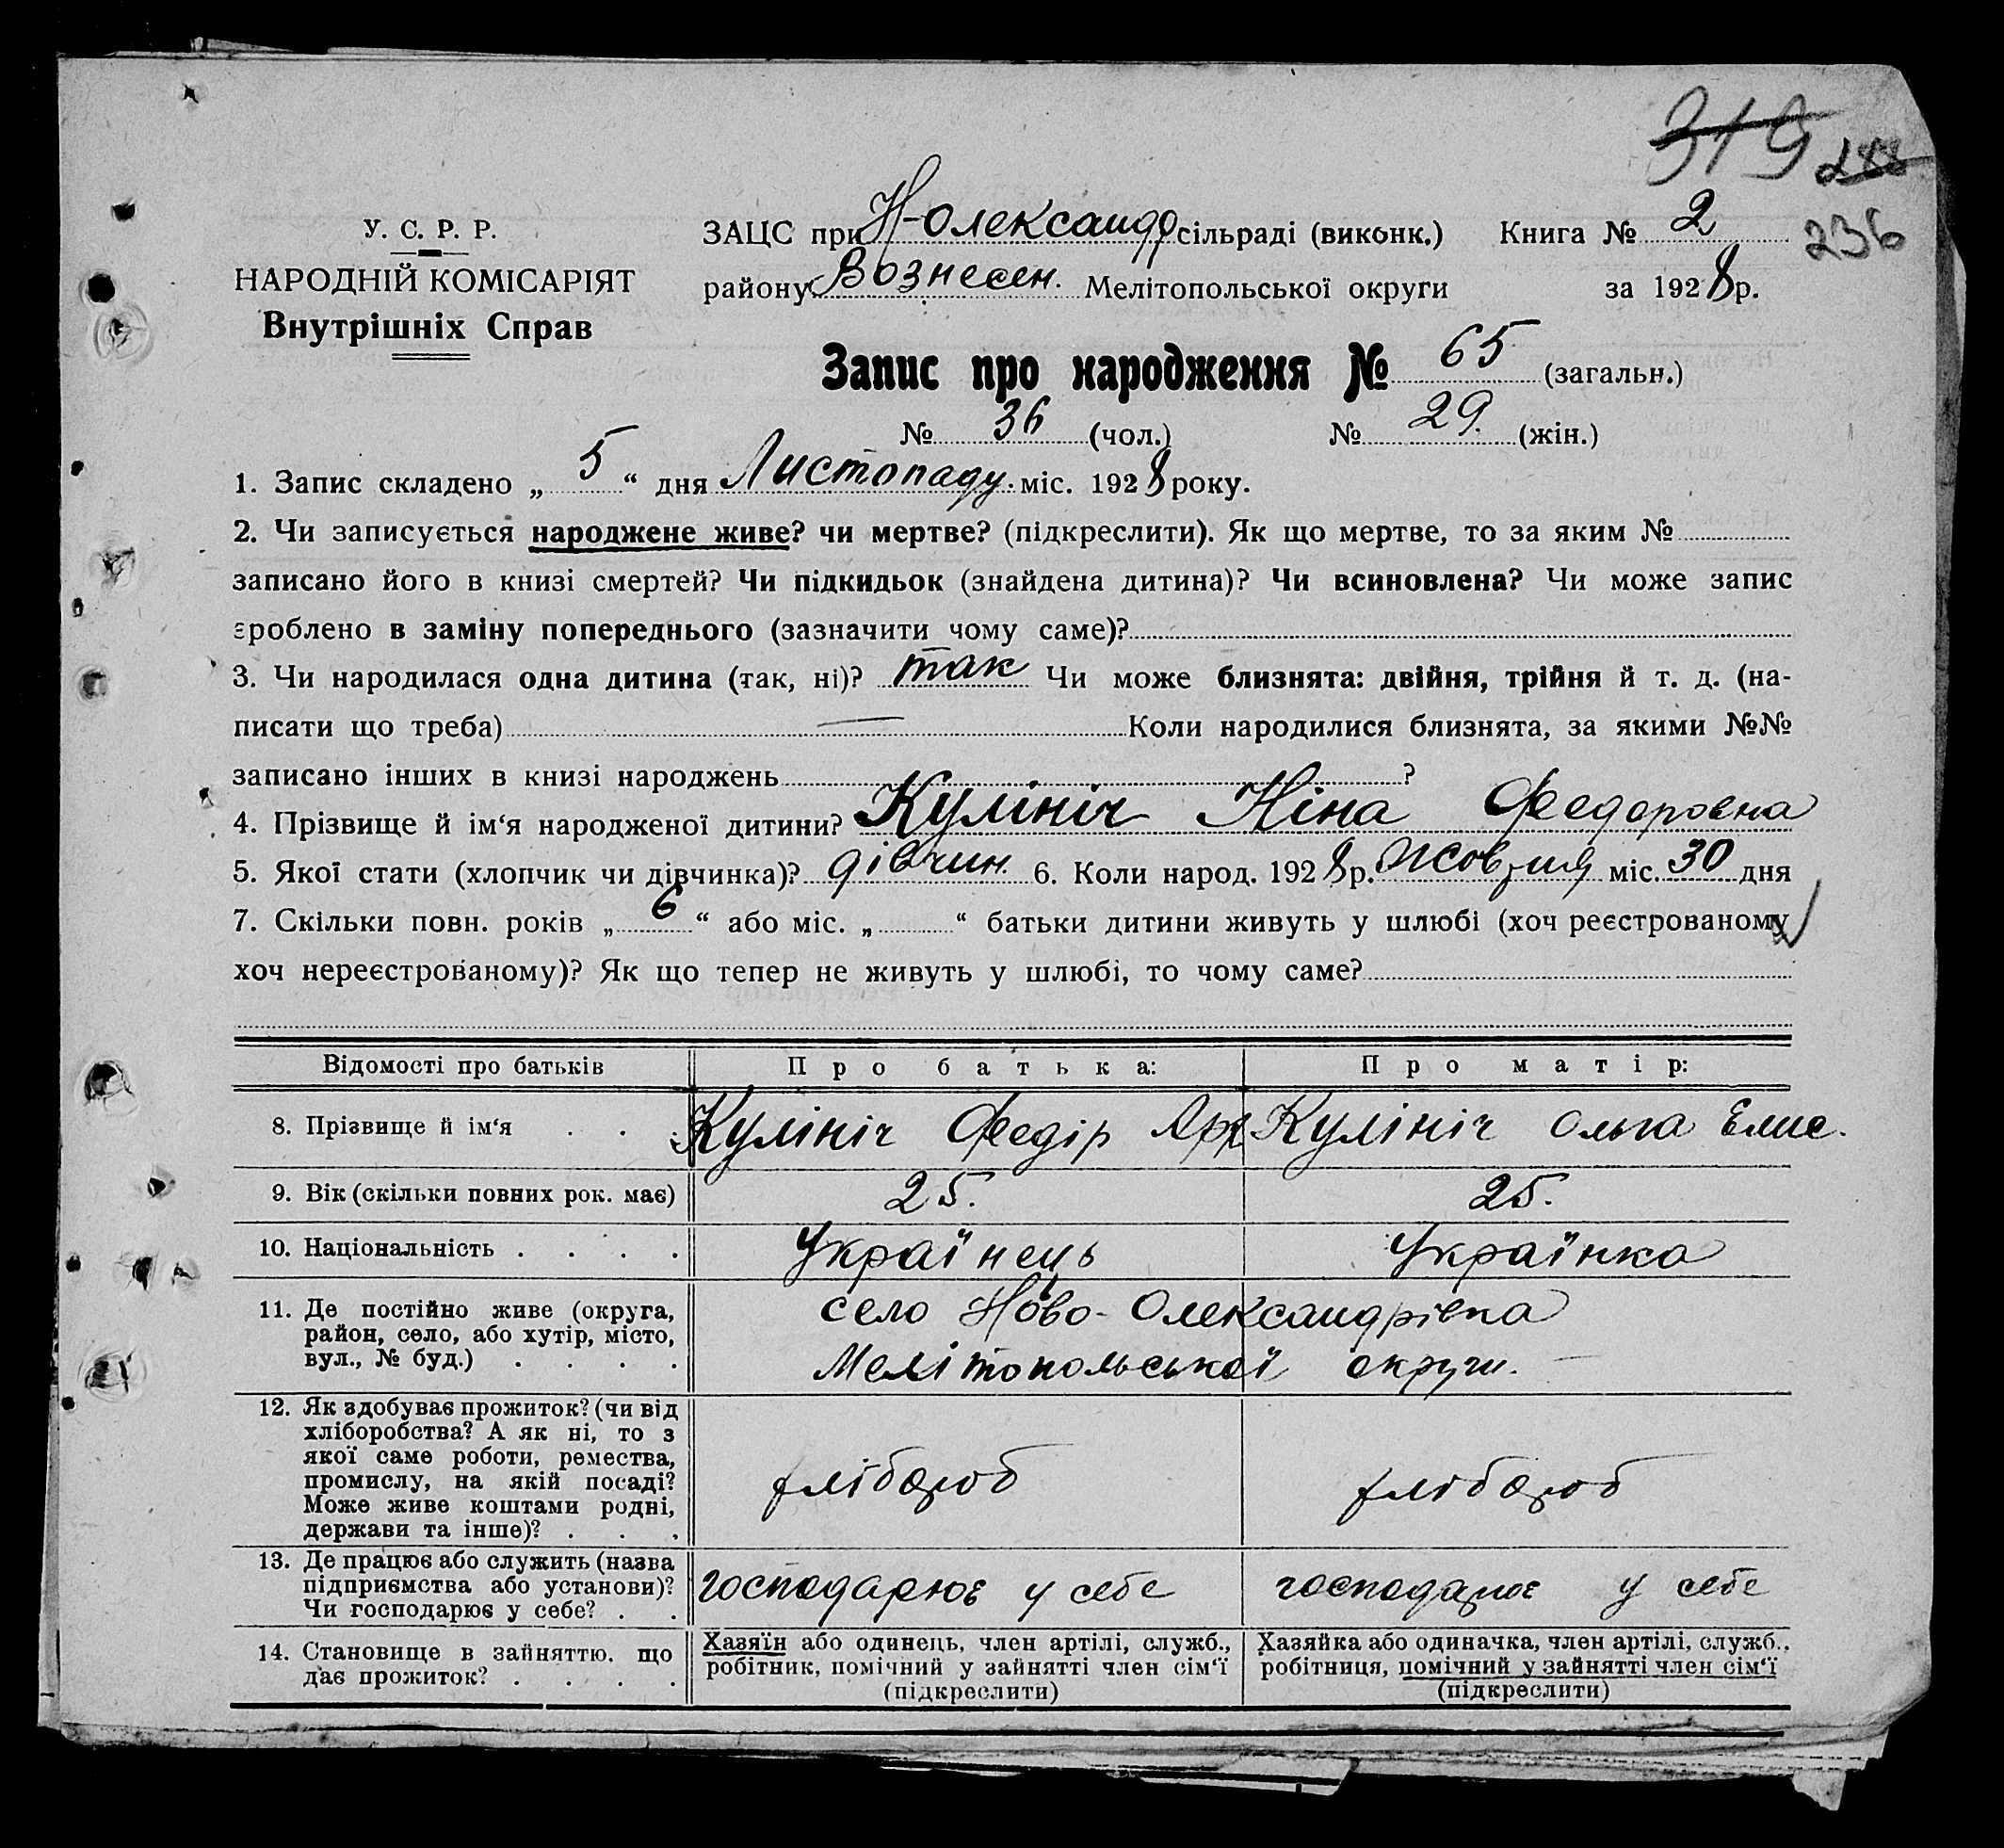 319 288
236
У. С. Р. Р.
НАРОДНІЙ КОМІСАРІЯТ
Внутрішніх Справ
ЗАЦС при Н-Олександр сільраді (виконк.) Книга № 2
району Вознесен. Мелітопольської округи за 1928 р.
Запис про народження № 65 (загальн.)
№ 36 (чол.) № 29. (жін.)
1. Запис складено „ 5 “ дня Листопаду. міс. 1928 року.
2. Чи записується народжене живе? чи мертве? (підкреслити). Як що мертве, то за яким №
записано його в книзі смертей? Чи підкидьок (знайдена дитина)? Чи всиновлена? Чи може запис
зроблено в заміну попереднього (зазначити чому саме)?
3. Чи народилася одна дитина (так, ні)? так Чи може близнята: двійня, трійня й т. д. (на-
писати що треба) — Коли народилися близнята, за якими №№
записано інших в книзі народжень ?
4. Прізвище й ім‘я народженої дитини? Кулініч Ніна Федоровна
5. Якої стати (хлопчик чи дівчинка)? дівчин. 6. Коли народ. 1928 р. Жовтня міс. 30 дня
7. Скільки повн. років „ 6 “ або міс. „ “ батьки дитини живуть у шлюбі (хоч реєстрованому
хоч нереєстрованому)? Як що тепер не живуть у шлюбі, то чому саме?
Відомості про батьків Про батька: Про матір:
8. Прізвище й ім‘я . . . Кулініч Федір Кулініч Ольга Елис.
9. Вік (скільки повних рок. має) 25. 25.
10. Національність . . . . Українець Українка
11. Де постійно живе (округа,
район, село, або хутір, місто,
вул., № буд.) . . . .
село Ново-Олександрівка
Мелітопольської округи. —
12. Як здобуває прожиток? (чи від
хліборобства? А як ні, то з
якої саме роботи, ремества,
промислу, на якій посаді?
Може живе коштами родні,
держави та інше)? . . .
хлібороб хлібороб
13. Де працює або служить (назва
підприємства або установи)?
Чи господарює у себе? . .
господарює у себе господарює у себе
14. Становище в зайняттю, що
дає прожиток? . . . .
Хазяїн або одинець, член артілі, служб.,
робітник, помічний у зайнятті член сім‘ї
(підкреслити)
Хазяйка або одиначка, член артілі, служб.,
робітниця, помічний у зайнятті член сім‘ї
(підкреслити)